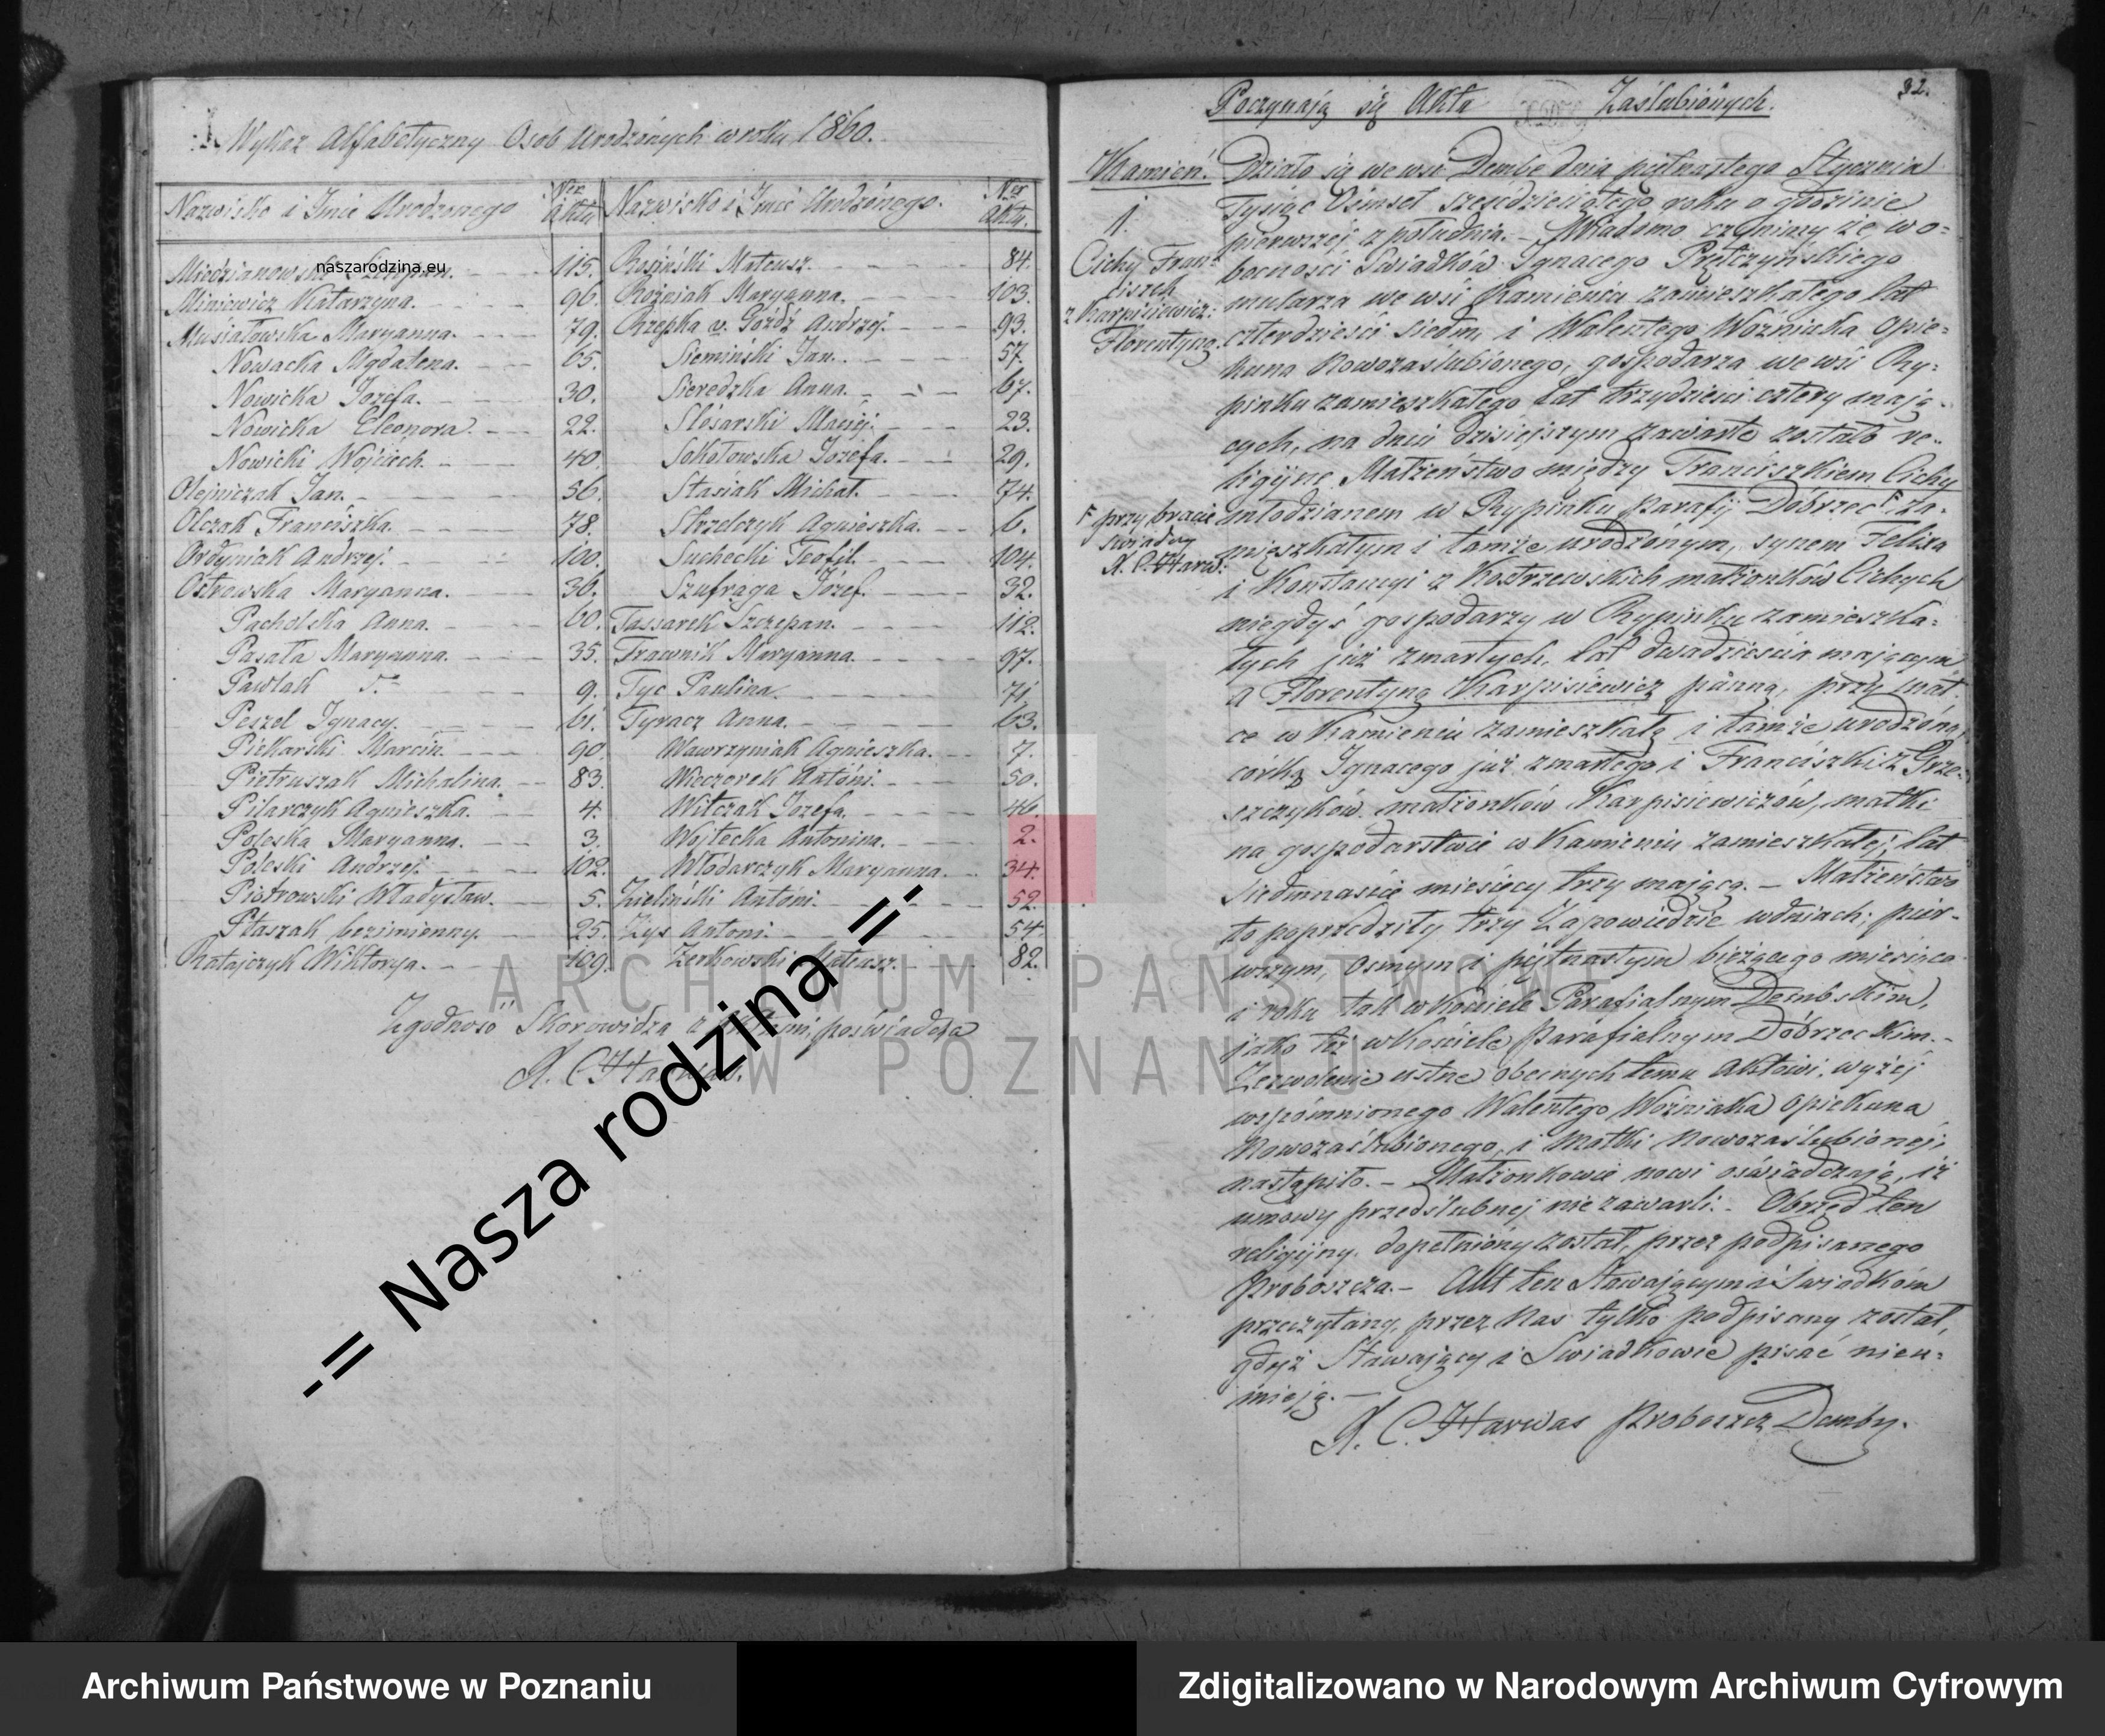 Wykaz Alfabetyczny Osob Urodzonych w roku 1860.
Nazwisko i Imie Urodzonego Ner Aktu Nazwisko i Imie Urodzonego. Ner Aktu.
naszarodzina.eu 115. Rosiński Mateusz. 84.
Miniewicz Katarzyna. 96. Roźniak Maryanna. 103.
Musiałowska Maryanna. 79. Rzepka v. Góźdź Andrzej. 93.
Nowacka Magdalena. 65. Siemiński Jan. 57.
Nowicka Józefa. 30. Sieredzka Anna. 67.
Nowicka Eleonora. 22. Slósarski Maciej. 23.
Nowicki Wojciech. 40. Sokołowska Józefa. 29.
Olejniczak Jan. 56. Stasiak Michał. 74.
Olczak Franciszka. 78. Strzelczyk Agnieszka. 6.
Ordyniak Andrzej. 100. Suchecki Teofil. 104.
Ostrowska Maryanna. 36. Szufraga Józef. 32.
Pacholska Anna. 60. Tassarek Szczepan. 112.
Pasała Maryanna. 35. Trawnik Maryanna. 97.
Pawlak 9. Tyc Paulina. 71.
Peszel Ignacy. 61. Tyracz Anna. 63.
Piekarski Marcin. 90. Wawrzyniak Agnieszka. 7.
Pietruszak Michalina. 83. Wieczorek Antoni. 50.
Pilarczyk Agnieszka. 4. Witczak Józefa. 46.
Poleska Maryanna. 3. Wojtecka Antonina. 2.
Poleski Andrzej. 102. Włodarczyk Maryanna. 34.
Piotrowski Władysław. 5. Zieliński Antoni. 52.
Ptaszak bezimienny. 25. Zys Antoni. 54.
Ratajczyk Wiktorya. 109. Zerkowski Mateusz. 82.
Zgodność Skorowidza z Aktami, poświadcza
X. C. Harwas.
-= Nasza rodzina =-
32.
Poczynają się Akta Zaślubionych.
Kamień.
1.
Cichy Fran=
ciszek
z Karpisiewicz:
Florentyną.
Działo się we wsi Dembe dnia piętnastego Stycznia
Tysiąc Ośmset sześćdziesiątego roku o godzinie
pierwszej z południa. – Wiadomo czynimy że w o=
becności Świadków Ignacego Prętczyńskiego
mularza we wsi Kamieniu zamieszkałego lat
czterdzieści siedm, i Walentego Woźniaka opie=
kuna Nowozaslubionego, gospodarza we wsi Ry=
pinku zamieszkałego lat trzydzieści cztery mają=
cych, na dniu dzisiejszym zawarte zostało re=
ligijne Małżeństwo między Franciszkiem Cichy
młodzianem w Rypinku parafij Dobrzec F. za=
mieszkałym i tamże urodzonym, synem Felixa
F przy bracie
świadczy
X. C. Harw.
i Konstancyi z Kostrzewskich małżonków Cichych
niegdyś gospodarzy w Rypinku zamieszka=
łych już zmarłych, lat dwadzieścia mającym
a Florentyną Karpisiewicz panną, przy mat=
ce w Kamieniu zamieszkałą i tamże urodzoną,
córką Ignacego już zmarłego i Franciszki z Grze=
szczyków małżonków Karpisiewiczów, matki
na gospodarstwie w Kamieniu zamieszkałej, lat
siedmnaście miesięcy trzy mającą. – Małżeństwo
to poprzedziły trzy Zapowiedzie w dniach: pier=
wszym, osmym i piętnastym bieżącego miesiąca
i roku tak w Kościele Parafialnym Dembskim,
jako też w Kościele parafialnym Dobrzeckim. –
Zezwolenie ustne obecnych temu Aktowi, wyżej
wspomnionego Walentego Woźniaka opiekuna
Nowozaślubionego, i Matki Nowozaślubionej,
nastąpiło. – Małżonkowie nowi oświadczają, iż
umowy przedślubnej nie zawarli. – Obrzęd ten
religijny dopełniony został, przez podpisanego
Proboszcza. – Akt ten Stawającym i Świadkom
przeczytany, przez Nas tylko podpisany został,
gdyż Stawający i Świadkowie pisać nieu=
mieją. –
X. C. Harwas Proboszcz Demby.
ARCHIWUM PAŃSTWOWE
W POZNANIU
Archiwum Państwowe w Poznaniu
Zdigitalizowano w Narodowym Archiwum Cyfrowym